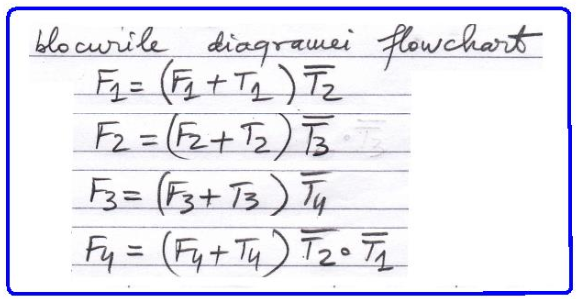 blocurile diagramei flowchart
F1 = (F1 + T1) T̅2
F2 = (F2 + T2) T̅3
F3 = (F3 + T3) T̅4
F4 = (F4 + T4) T̅2 · T̅1